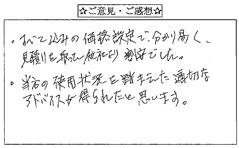 ☆ご意見・ご感想☆
・すべて込みの価格設定で、分かり易く、
見積りを取った他社より割安でした。
・当方の使用状況を踏まえた適切な
アドバイスが得られたと思います。